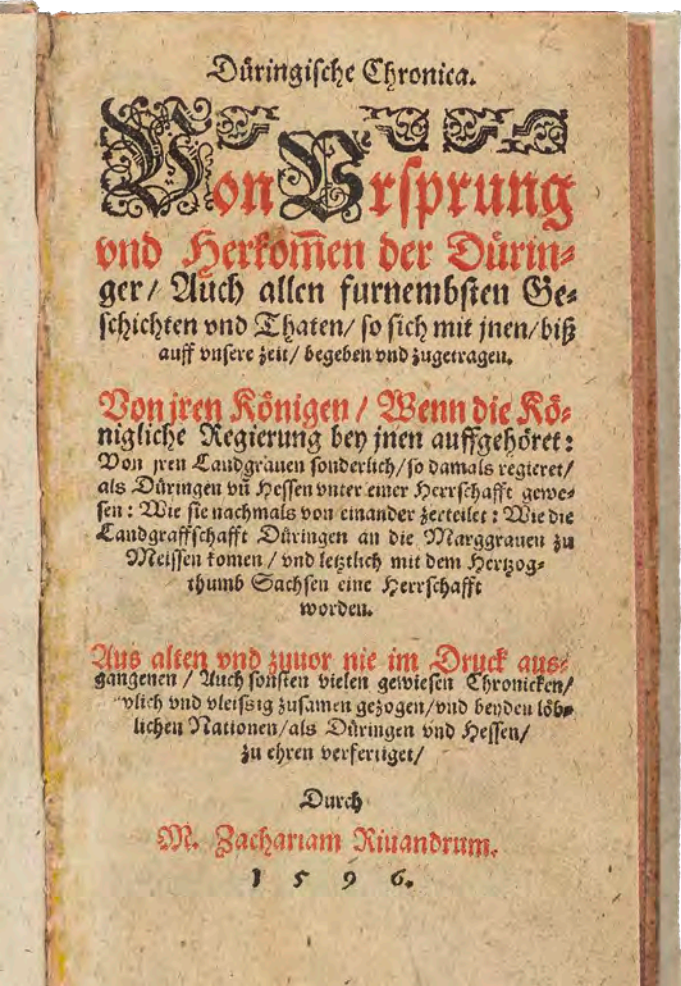 Düringische Chronica.
Von Vrsprung
vnd Herkom̄en der Dürin⸗
ger/ Auch allen furnembsten Ge⸗
schichten vnd Thaten/ so sich mit jnen/ biß
auff vnsere zeit/ begeben vnd zugetragen.
Von jren Königen / Wenn die Kö⸗
nigliche Regierung bey jnen auffgehöret:
Von jren Landgrauen sonderlich/ so damals regieret/
als Düringen vn̄ Hessen vnter einer Herrschafft gewe⸗
sen: Wie sie nachmals von einander zerteilet: Wie die
Landgraffschafft Düringen an die Marggrauen zu
Meissen komen / vnd letztlich mit dem Hertzog⸗
thumb Sachsen eine Herrschafft
worden.
Aus alten vnd zuuor nie im Druck aus⸗
gangenen / Auch sonsten vielen gewiesen Chronicken/
vlich vnd vleissig zusamen gezogen/ vnd beyden löb⸗
lichen Nationen/ als Düringen vnd Hessen/
zu ehren verfertiget/
Durch
M. Zachariam Riuandrum.
1 5 9 6.